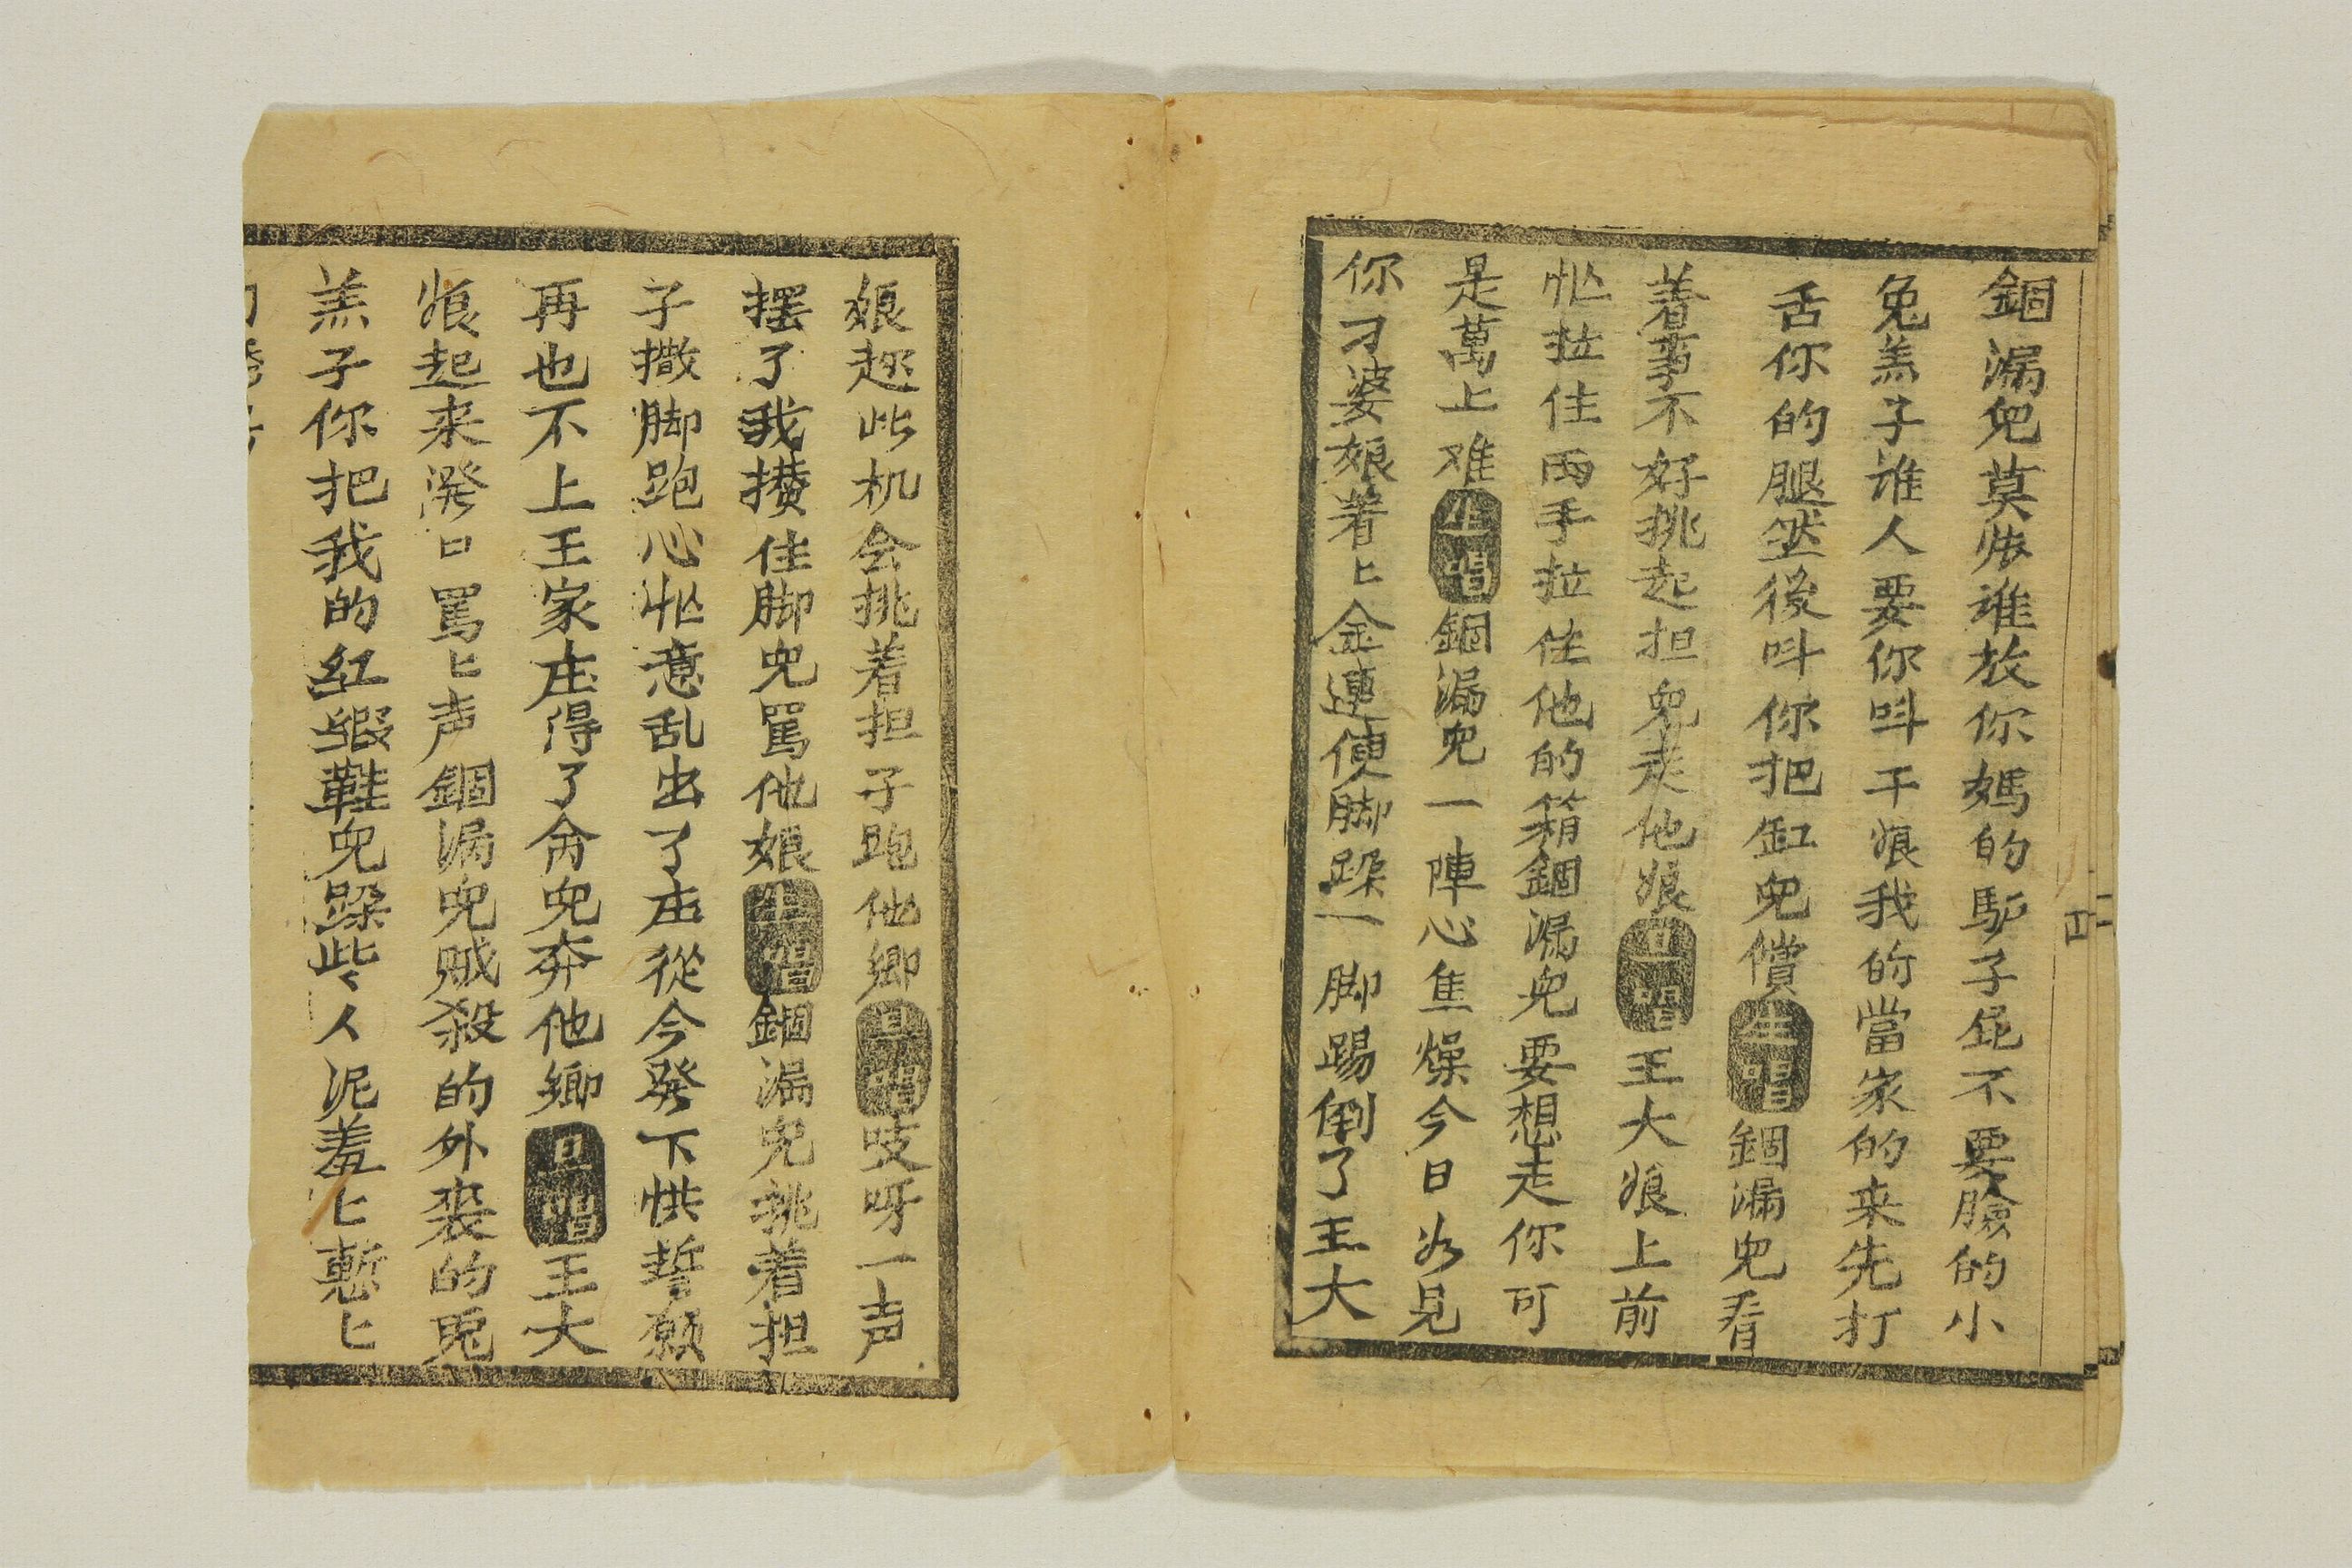 錮漏児莫悵谁放你媽的馿子屁不要臉的小
兔羔子谁人要你呌干娘我的當家的来先打
舌你的腿然後呌你把缸児償生唱錮漏児看
着事不好挑起担児走他娘旦唱王大娘上前
忙拉住両手拉住他的箱錮漏児要想走你可
是萬上难生唱錮漏児一陣心焦燥今日必見
你刁婆娘着上金連便脚跺一脚踢倒了王大
娘趂此机会挑着担子跑他鄉旦唱吱呀一声
摆了我攅住脚児罵他娘生唱錮漏児挑着担
子撒脚跑心忙意乱出了庄從今發下烘誓願
再也不上王家庄得了命児奔他鄉旦唱王大
娘起来潑口罵上声錮漏児贼殺的外装的兎
羔子你把我的红缎鞋児跺些々人泥羞上慙上